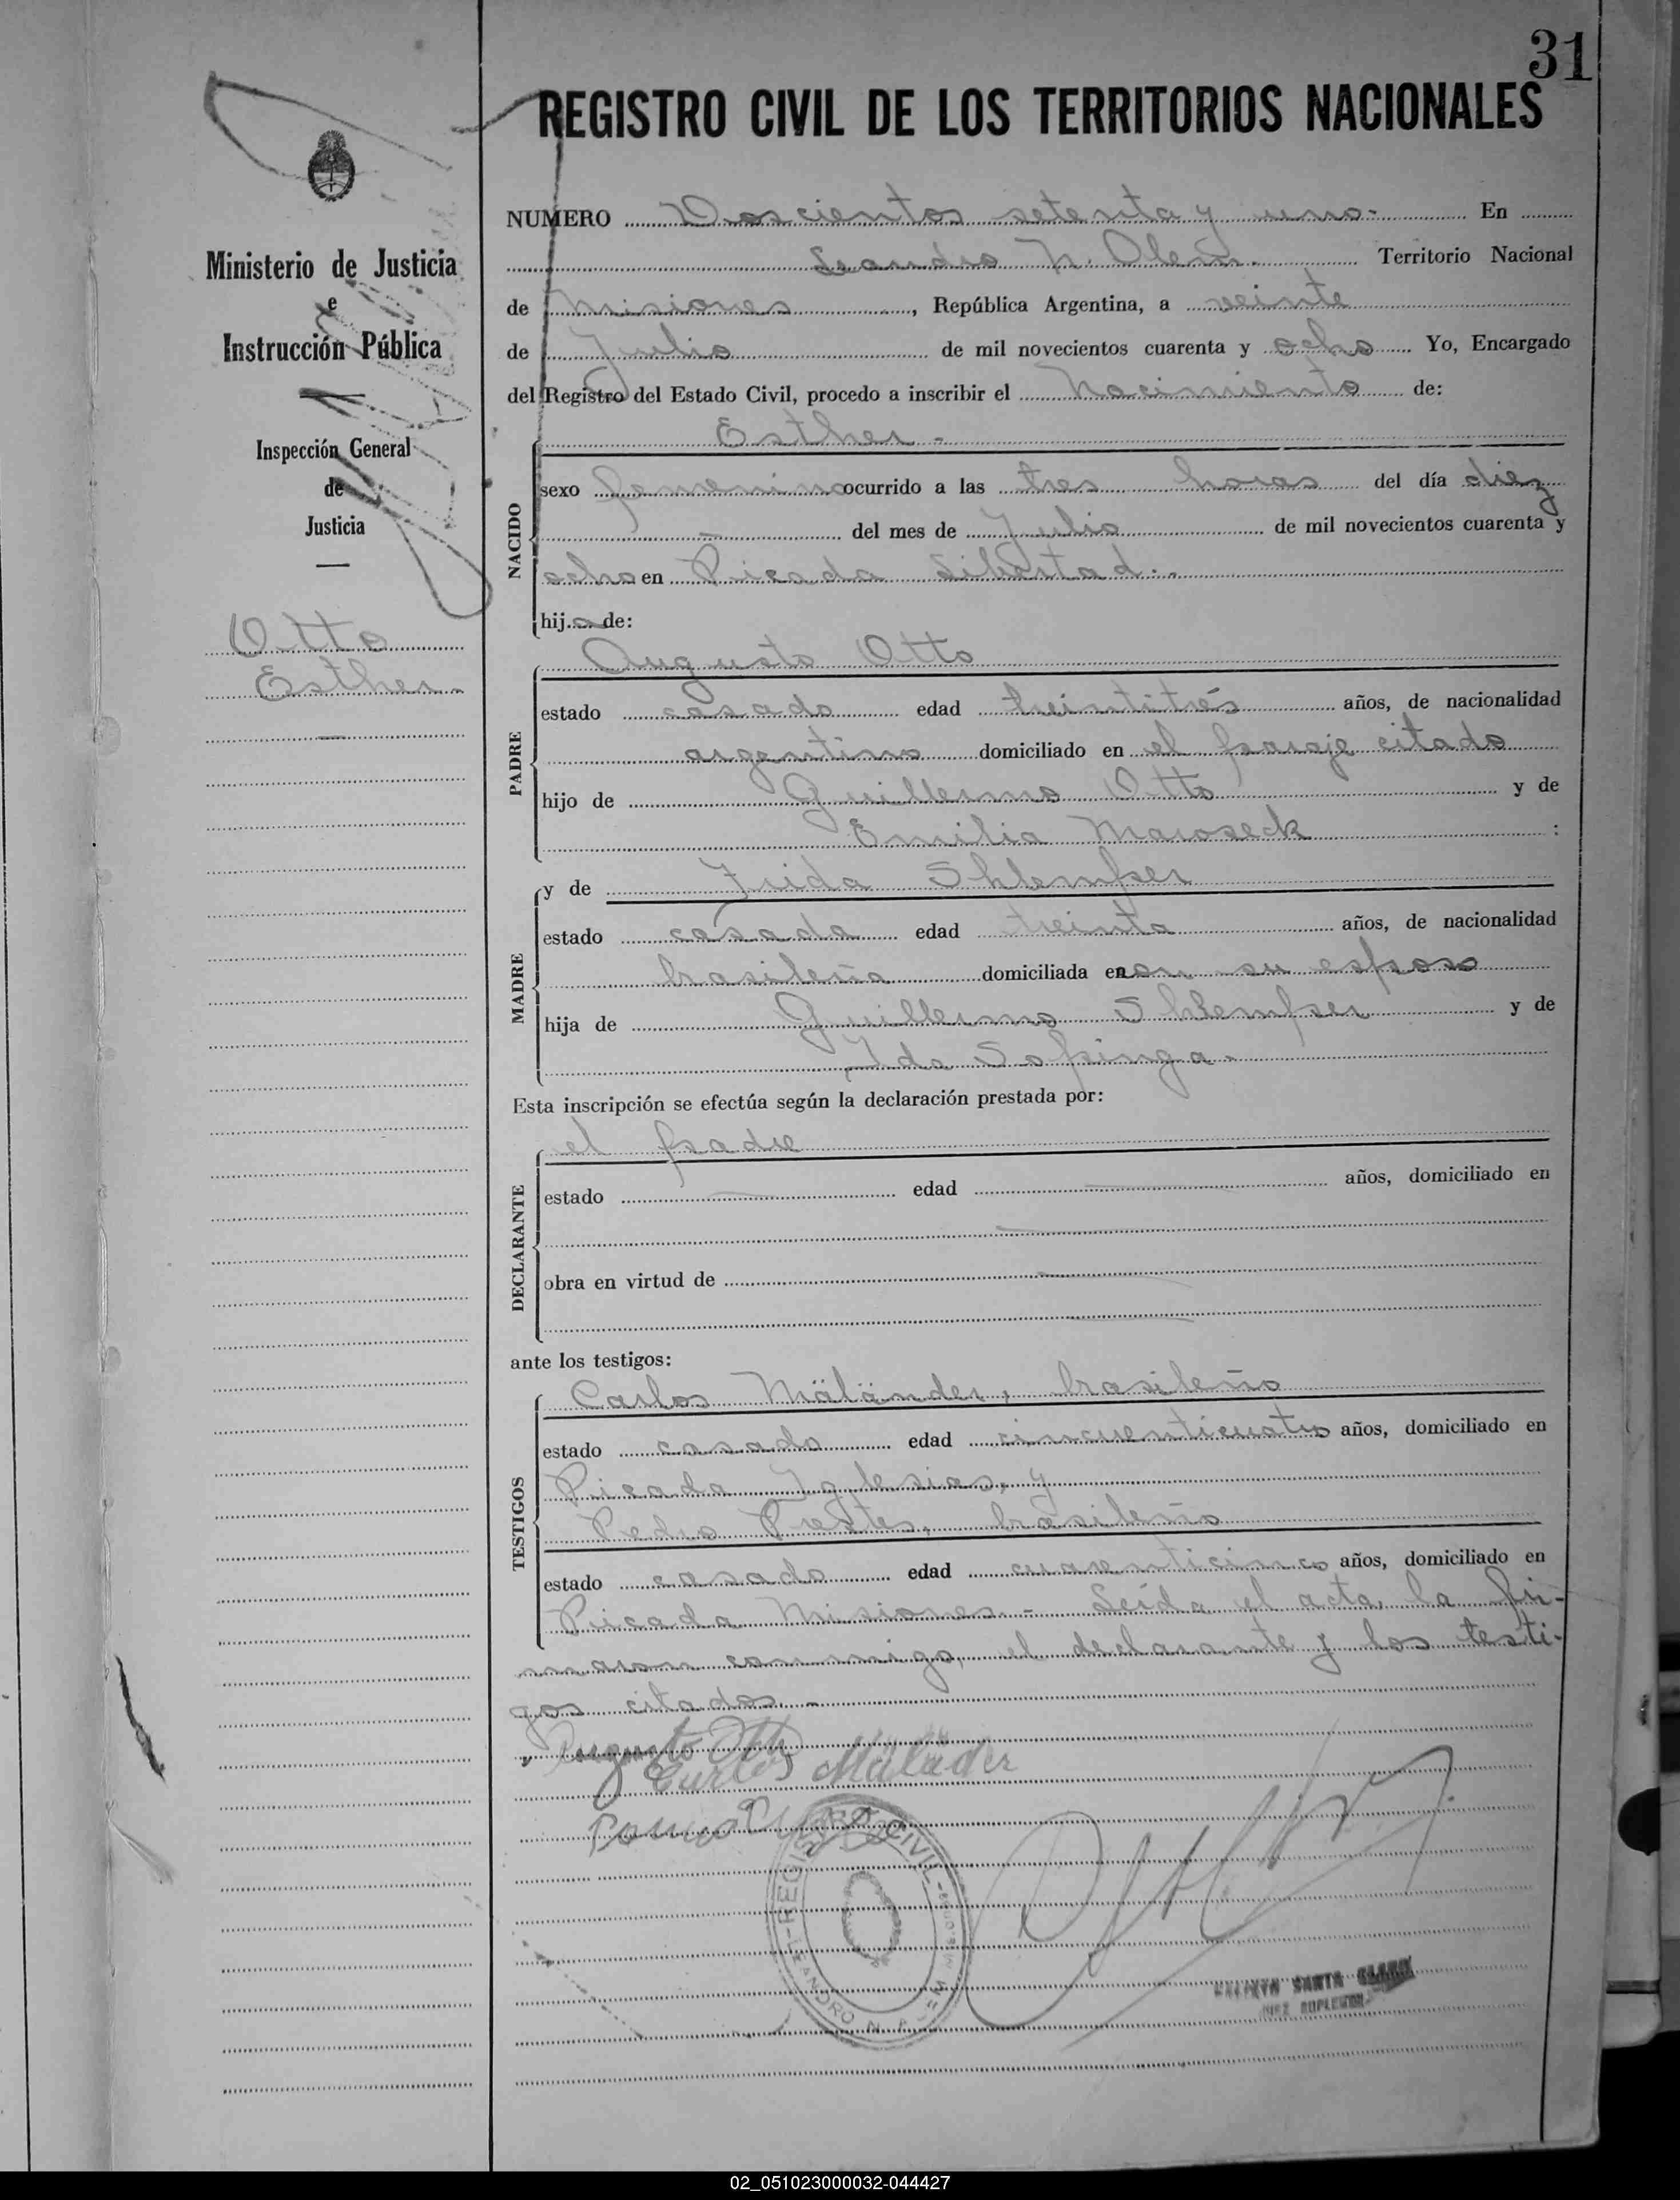 31
REGISTRO CIVIL DE LOS TERRITORIOS NACIONALES
Ministerio de Justicia
e
Instrucción Pública
Inspección General
de
Justicia
Otto
Esther.
NUMERO Doscientos setenta y uno- En
Leandro N. Alem. Territorio Nacional
de Misiones, República Argentina, a veinte
de Julio de mil novecientos cuarenta y ocho Yo, Encargado
del Registro del Estado Civil, procedo a inscribir el Nacimiento de:
Esther -
NACIDO
sexo femenino ocurrido a las tres horas del día diez
- del mes de Julio de mil novecientos cuarenta y
ocho en Picada Libertad.-
hija de:
Augusto Otto
PADRE
estado casado edad treintitrés años, de nacionalidad
argentino domiciliado en el paraje citado
hijo de Guillermo Otto y de
Emilia Maroseck :
y de Frida Shlemper
MADRE
estado casada edad treinta años, de nacionalidad
brasileña domiciliada con su esposo
hija de Guillermo Shlemper y de
Ida Sapinga.
Esta inscripción se efectúa según la declaración prestada por:
el padre
DECLARANTE
estado edad años, domiciliado en
obra en virtud de
ante los testigos:
Carlos Mäländer, brasileño
TESTIGOS
estado casado edad cincuenticuatro años, domiciliado en
Picada Iglesias, y
Pedro Prestes, brasileño
estado casado edad cuarenticinco años, domiciliado en
Picada Misiones.- Leída el acta, la fir-
maron conmigo, el declarante y los testi-
gos citados.-
Augusto Otto
Carlos Mäläder
REGISTRO CIVIL
LEANDRO N.
SANTA
JUEZ SUPLENTE
02_051023000032-044427